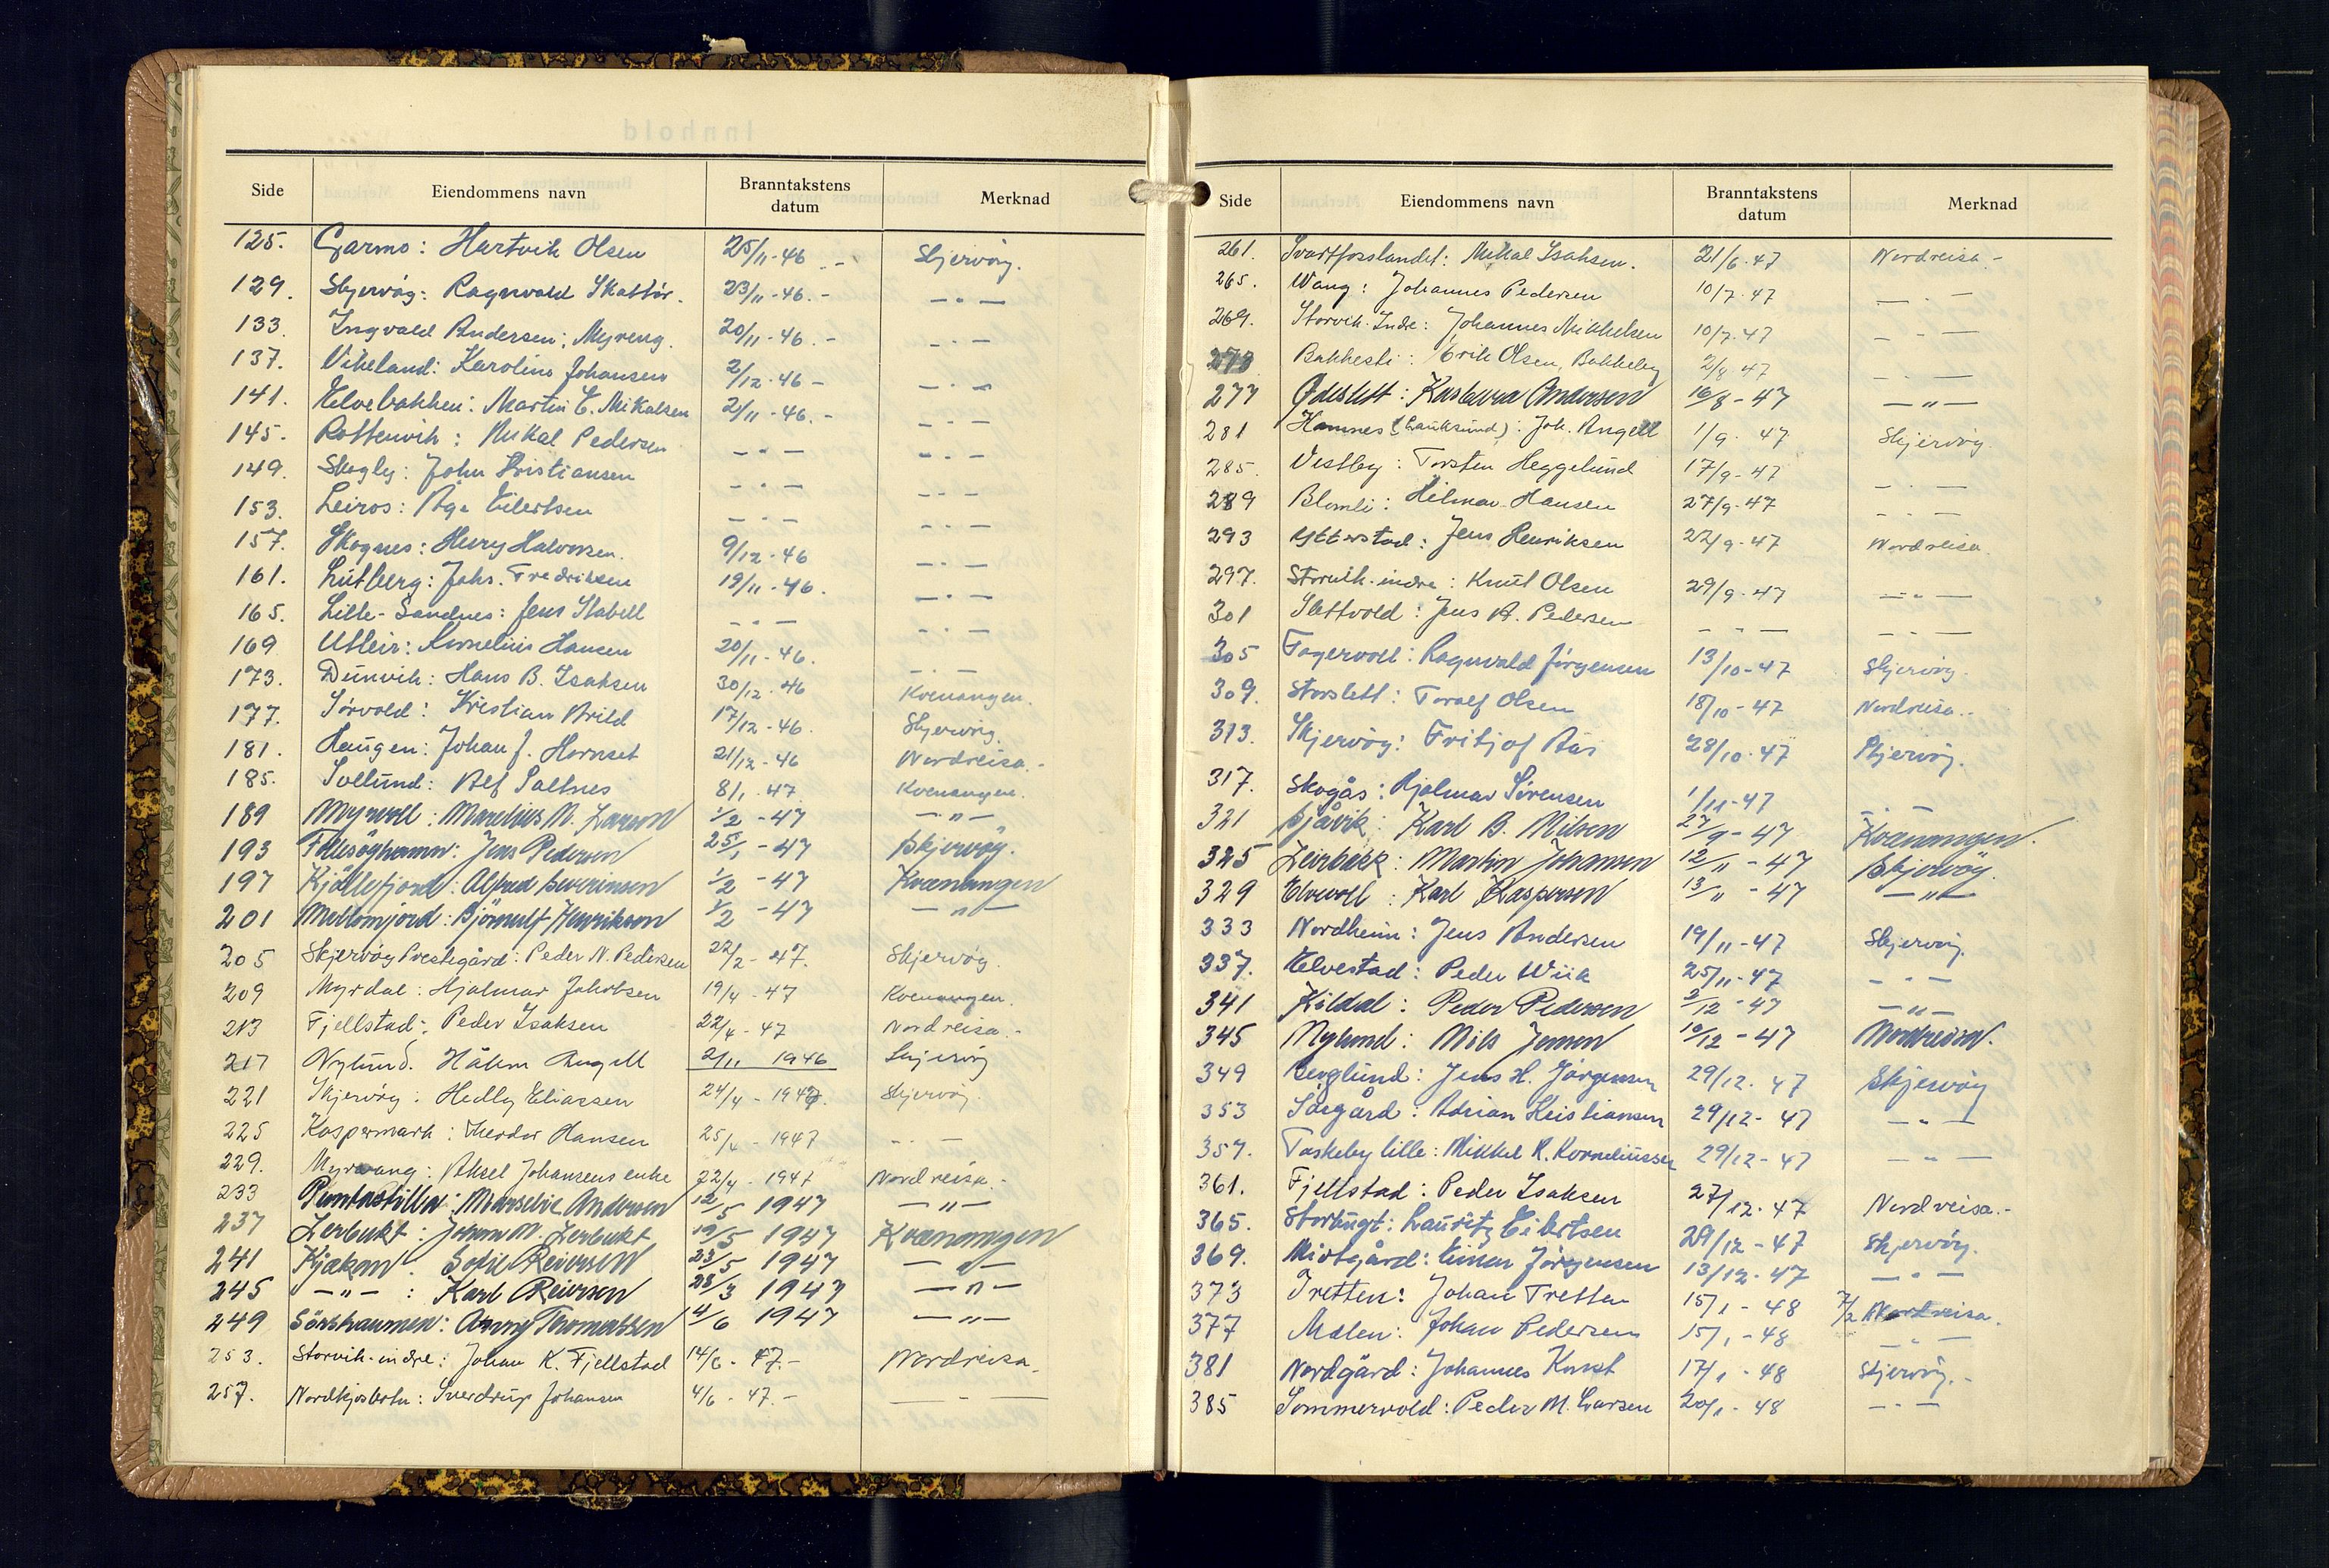 Side Eiendommens navn Branntakstens datum Merknad
125. Garmo: Hartvik Olsen 25/11-46.- Skjervöy.
129. Skjervöy: Ragnvald Skattör. 23/11-46.- -"-
133. Ingvald Andersen; Myreng. 20/11-46.- -"-
137. Vikeland: Karoline Johansen 2/12-46- -"-
141. Elvebakken: Martin E. Mikalsen 21/11-46.- -"-
145. Rottenvik: Mikal Pedersen -"- -"-
149. Skogly: John Kristiansen -"- -"-
153. Leiros: Åge Eilertsen -"- -"-
157. Skognes: Henry Halvorsen. 9/12-46 -"-
161. Lutberg: Johs. Fredriksen 19/11-46. -"-
165. Lille-Sandnes: Jens Stabell -"- -"-
169 Utleir: Kornelius Hansen 20/11-46. -"-
173. Dunvik: Hans B. Isaksen 30/12-46 Kvenangen.
177. Sörvold: Kristian Arild 17/12-46. Skjervöy.
181. Haugen: Johan J. Hornset 21/12-46 Nordreisa.-
185. Sollund: Alf Saltnes 8/1-47 Kvenangen.
189 Myrvoll: Marelius N. Larsen 1/2-47 -"-
193 Follesöyhamn: Jens Pedersen 25/1-47 Skjervöy.
197 Kjöllefjord: Alfred Severinsen 1/2-47 Kvænangen
201 Mellemjord: Björnulf Henriksen 1/2-47 -"-
205 Skjervöy Prestegård: Peder N. Pedersen 22/2-47. Skjervöy.
209 Myrdal: Hjalmar Jakobsen 19/4-47 Kvenangen.
213 Fjellstad: Peder Isaksen 22/4-47 Nordreisa.-
217 Nylund. Håkon Angell 2/11 1946 Skjervöy
221 Skjervöy: Hedley Eliassen 24/4-1947. Skjervöy.
225 Kaspermark: Theodor Hansen 25/4-1947 -"-
229. Myrvang: Aksel Johansens enke 22/4-1947 Nordreisa.-
233 Punta Marselie Andersen 12/5 1947 -"-
237 Lerbukt: Johan N. Lerbukt 19/5 1947 Kvænangen
241 Kjækan: Sofie Reiersen 23/5 1947 -"-
245 -"-: Karl Reiersen 28/3 1947 -"-
249 Sörstraumen: Anny Thomassen 4/6 1947 -"-
253. Storvik-indre: Johan K. Fjellstad 14/6-47.- Nordreisa.
257. Nordkjosbotn: Sverdrup Johansen 4/6-47.- -
Side Eiendommens navn Branntakstens datum Merknad
261. Svartfosslandet: Mikal Isaksen. 21/6-47 Nordreisa.-
265. Wang: Johannes Pedersen 10/7-47 -"-
269. Storvik-Indre: Johannes Mikkelsen 10/7-47 -"-
273 Bakkesti: Erik Olsen, Bakkeby 2/8 47 -"-
277 Ödeslett: Kasbera Andersen 16/8-47 -"-
281 Hamnes (Lauksund): Joh. Angell 1/9-47 Skjervöy.
285. Vestby: Torsten Heggelund 17/9-47 -"-
289 Blomli: Hilmar Hansen 27/9-47 -"-
293 Ytterstad: Jens Henriksen 22/9-47 Nordreisa.
297. Storvik-indre: Knut Olsen 29/9-47 -"-
301 Slettvold: Jens A. Pedersen -"- -"-
305 Fagervoll: Ragnvald Jörgensen 13/10-47 Skjervöy.
309. Storslett: Toralf Olsen 18/10-47 Nordreisa.-
313. Skjervöy: Fritjof Ås 28/10-47 Skjervöy.
317. Skogås: Hjalmar Sörensen 1/11-47 -"-
321 Sjåvik: Karl B. Nilsen 27/9-47 Kvænangen.
325 Leirbakk: Martin Johansen 12/11-47 Skjervöy.
329 Elvevoll: Karl Kaspersen 13/11-47 -"-
333 Nordheim: Jens Andersen 19/11-47 Skjervöy.
337. Elvestad: Peder Wiik 25/11-47 -"-
341 Kildal: Peder Pedersen 2/12-47 -"-
345 Nylund: Nils Jensen 10/12-47 Nordreisa.
349 Berglund: Jens H. Jörgensen 29/12-47 Skjervöy
353 Sörgård: Adrian Kristiansen 29/12-47 -"-
357. Taskeby lille: Mikkel R. Korneliussen 29/12-47 -"-
361. Fjellstad: Peder Isaksen 27/12-47 Nordreisa.-
365. Stortugt: Lauritz Eilertsen 29/12-47 Skjervöy.
369. Midtgård: Einar Jörgensen 13/12-47 -"-
373 Tretten: Johan Tretten 15/1-48 7/2 Nordreisa.
377 Molen: Johan Pedersen 15/1-48 -"-
381 Nordgård: Johannes Kvist 17/1-48 Skjervöy.-
385 Sommervold: Peder M. Larsen 20/1-48 -"-